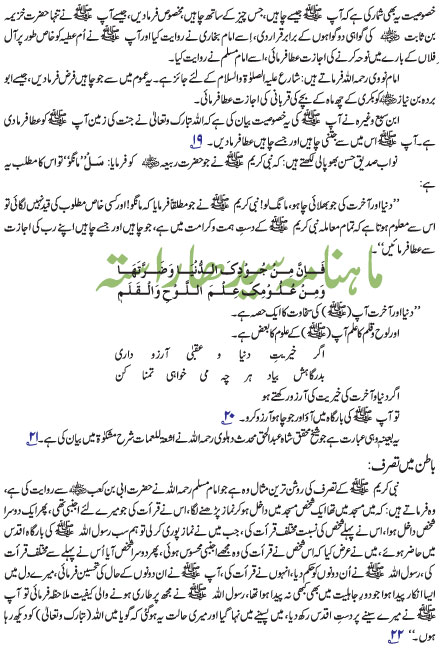 خصوصیت یہ بھی شمار کی ہے کہ آپ ﷺ جیسے چاہیں، جس چیز کے ساتھ چاہیں مخصوص فرمادیں، جیسے آپ ﷺ نے تنہا حضرت خزیمہ
بن ثابت ؓ کی گواہی دو گواہوں کے برابر قرار دی، اسے امام بخاری نے روایت کیا اور آپ ﷺ نے اُم عطیہ کو خاص طور پر آل
فلاں کے بارے میں نوحہ کرنے کی اجازت عطا فرمائی، اسے امام مسلم نے روایت کیا۔
امام نووی رحمہ اللہ فرماتے ہیں: شارع علیہ الصلوٰۃ والسلام کے لئے جائز ہے۔ یہ عموم میں سے جو چاہیں خاص فرمادیں، جیسے ابو
بردہ بن نیاز ؓ کو بکری کے چھ ماہ کے بچے کی قربانی کی اجازت عطا فرمائی۔
ابن سبع وغیرہ نے آپ ﷺ کی یہ خصوصیت بیان کی ہے کہ اللہ تبارک وتعالیٰ نے جنت کی زمین آپ ﷺ کو عطا فرمادی
ہے، آپ ﷺ اس میں سے جتنی چاہیں اور جسے چاہیں عطا فرمادیں۔ ۱۹
نواب صدیق حسن بھوپالی لکھتے ہیں: کہ نبی کریم ﷺ نے جو حضرت ربیعہ ؓ کو فرمایا: سَلْ ”مانگو“ تو اس کا مطلب یہ
ہے:
”دنیا اور آخرت کی جو بھلائی چاہو، مانگ لو! نبی کریم ﷺ نے جو مطلقاً فرمایا کہ مانگو! اور کسی خاص مطلوب کی قید نہیں لگائی تو
اس سے معلوم ہوتا ہے کہ تمام معاملہ نبی کریم ﷺ کے دستِ ہمت و کرامت میں ہے، جو چاہیں اور جسے چاہیں اپنے رب کی اجازت سے
عطا فرمائیں“۔
ماہنامہ سیدھا راستہ
فَاِنَّ مِنْ جُوْدِکَ الدُّنْیَا وَضَرَّتَہَا
وَمِنْ عُلُوْمِکَ عِلْمُ اللَّوْحِ وَالْقَلَمِ
”دنیا اور آخرت آپ (ﷺ) کی سخاوت کا ایک حصہ ہے۔
اور لوح وقلم کا علم آپ (ﷺ) کے علوم کا بعض ہے۔
اگر خیریتِ دنیا و عقبیٰ آرزو داری
بدرگاہش بیاد ہر چہ می خواہی تمنا کن
اگر دنیا و آخرت کی خیریت کی آرزو رکھتے ہو
تو آپ ﷺ کی بارگاہ میں آؤ اور جو چاہو آرزو کرو۔ ۲۰
یہ بعینہٖ وہی عبارت ہے جو شیخ محقق شاہ عبد الحق محدث دہلوی رحمہ اللہ نے اشعۃ اللمعات شرح مشکوٰۃ میں بیان کی ہے۔ ۲۱
باطن میں تصرف:
نبی کریم ﷺ کے تصرف کی روشن ترین مثال وہ ہے جو امام مسلم رحمہ اللہ نے حضرت ابی بن کعب ؓ سے روایت کی ہے،
وہ فرماتے ہیں: کہ میں مسجد میں تھا ایک شخص مسجد میں داخل ہو کر نماز پڑھنے لگا، اس نے قرأت کی جو میرے لئے اجنبی تھی، پھر ایک دوسرا
شخص داخل ہوا، اس نے پہلے شخص کی نسبت مختلف قرأت کی، جب میں نے نماز پوری کر لی تو ہم سب رسول اللہ ﷺ کی بارگاہ اقدس
میں حاضر ہوئے، میں نے عرض کیا کہ اس شخص نے قرأت کی وہ مجھے اجنبی محسوس ہوئی، پھر دوسرا شخص آیا اُس نے پہلے سے مختلف قرأت
کی، رسول اللہ ﷺ نے اُن دونوں کو حکم دیا، انہوں نے قرأت کی، آپ ﷺ نے ان دونوں کے حال کی تحسین فرمائی، میرے دل میں
ایسا انکار پیدا ہوا جو دورِ جاہلیت میں بھی کبھی نہ پیدا ہوا تھا، رسول اللہ ﷺ نے مجھ پر طاری ہونے والی کیفیت ملاحظہ فرمائی تو آپ
ﷺ نے میرے سینے پر دستِ اقدس رکھ دیا، میں پسینے میں نہا گیا اور میری حالت یہ ہو گئی کہ گویا میں اللہ (تبارک وتعالیٰ) کو دیکھ رہا
ہوں۔“ ۲۲